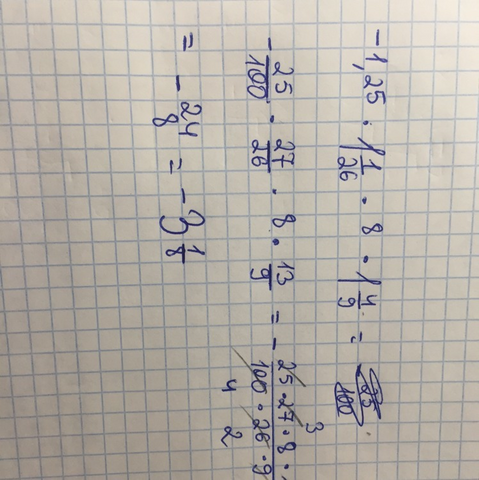 -1,25 · 1 1/26 · 8 · 1 4/9 =
- 25/100 · 27/26 · 8 · 13/9 = - 25 · 27 · 8 · / 100 · 26 · 9
3
4 2
= - 24/8 = -3 1/8